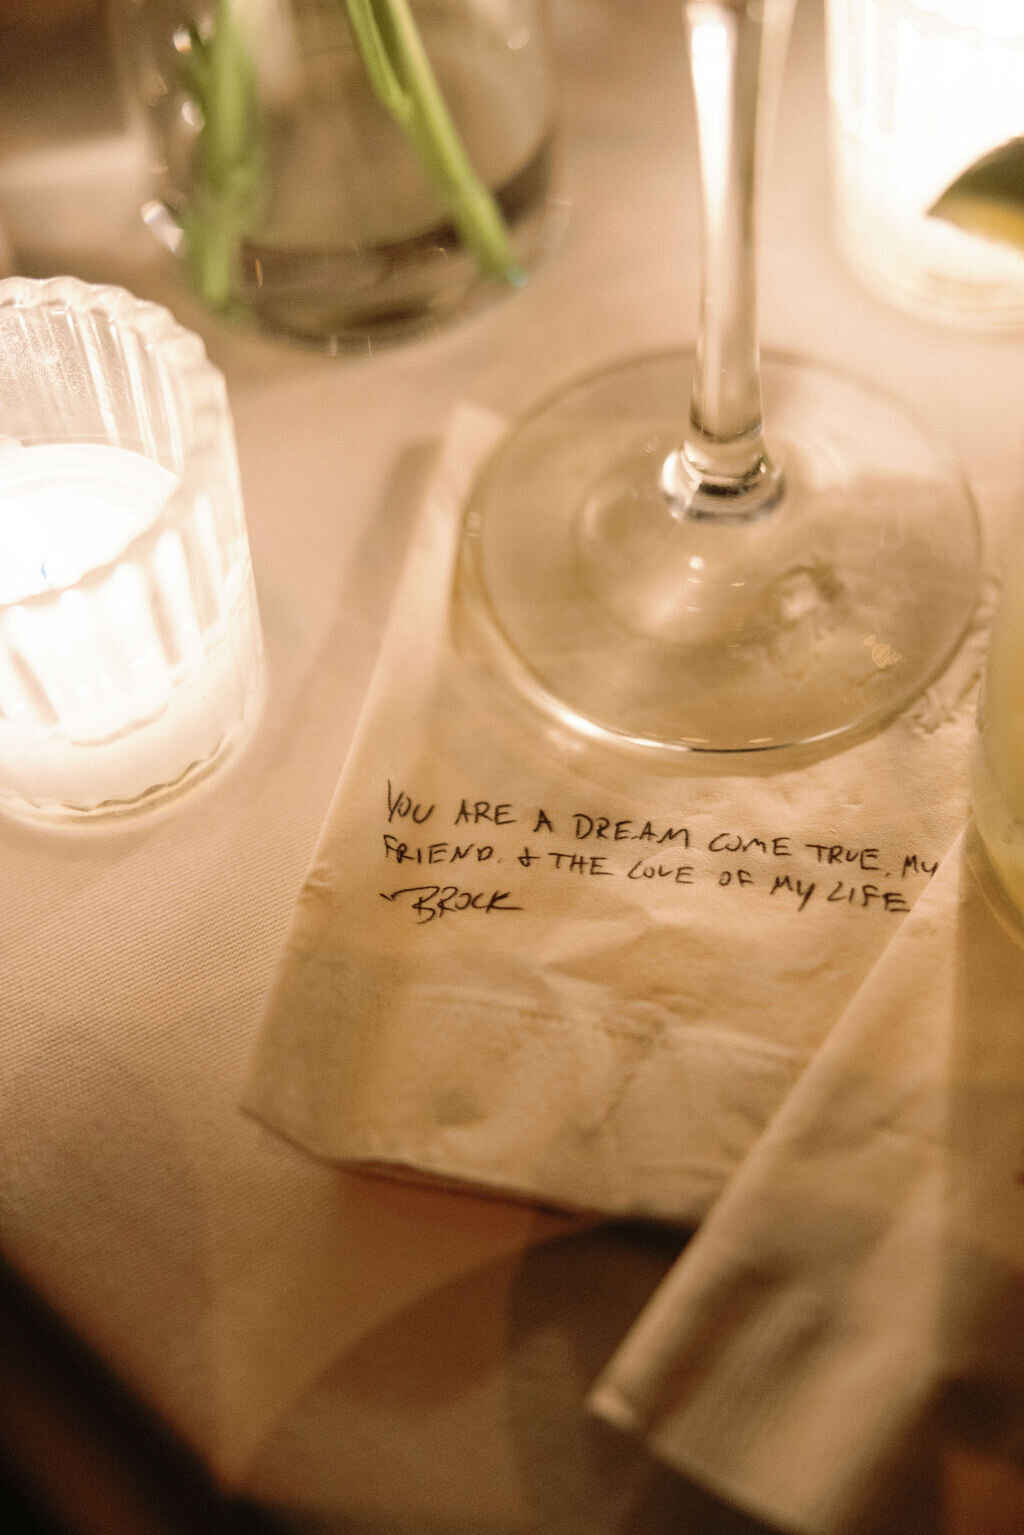 YOU ARE A DREAM COME TRUE, MY
FRIEND, & THE LOVE OF MY LIFE
-BROCK